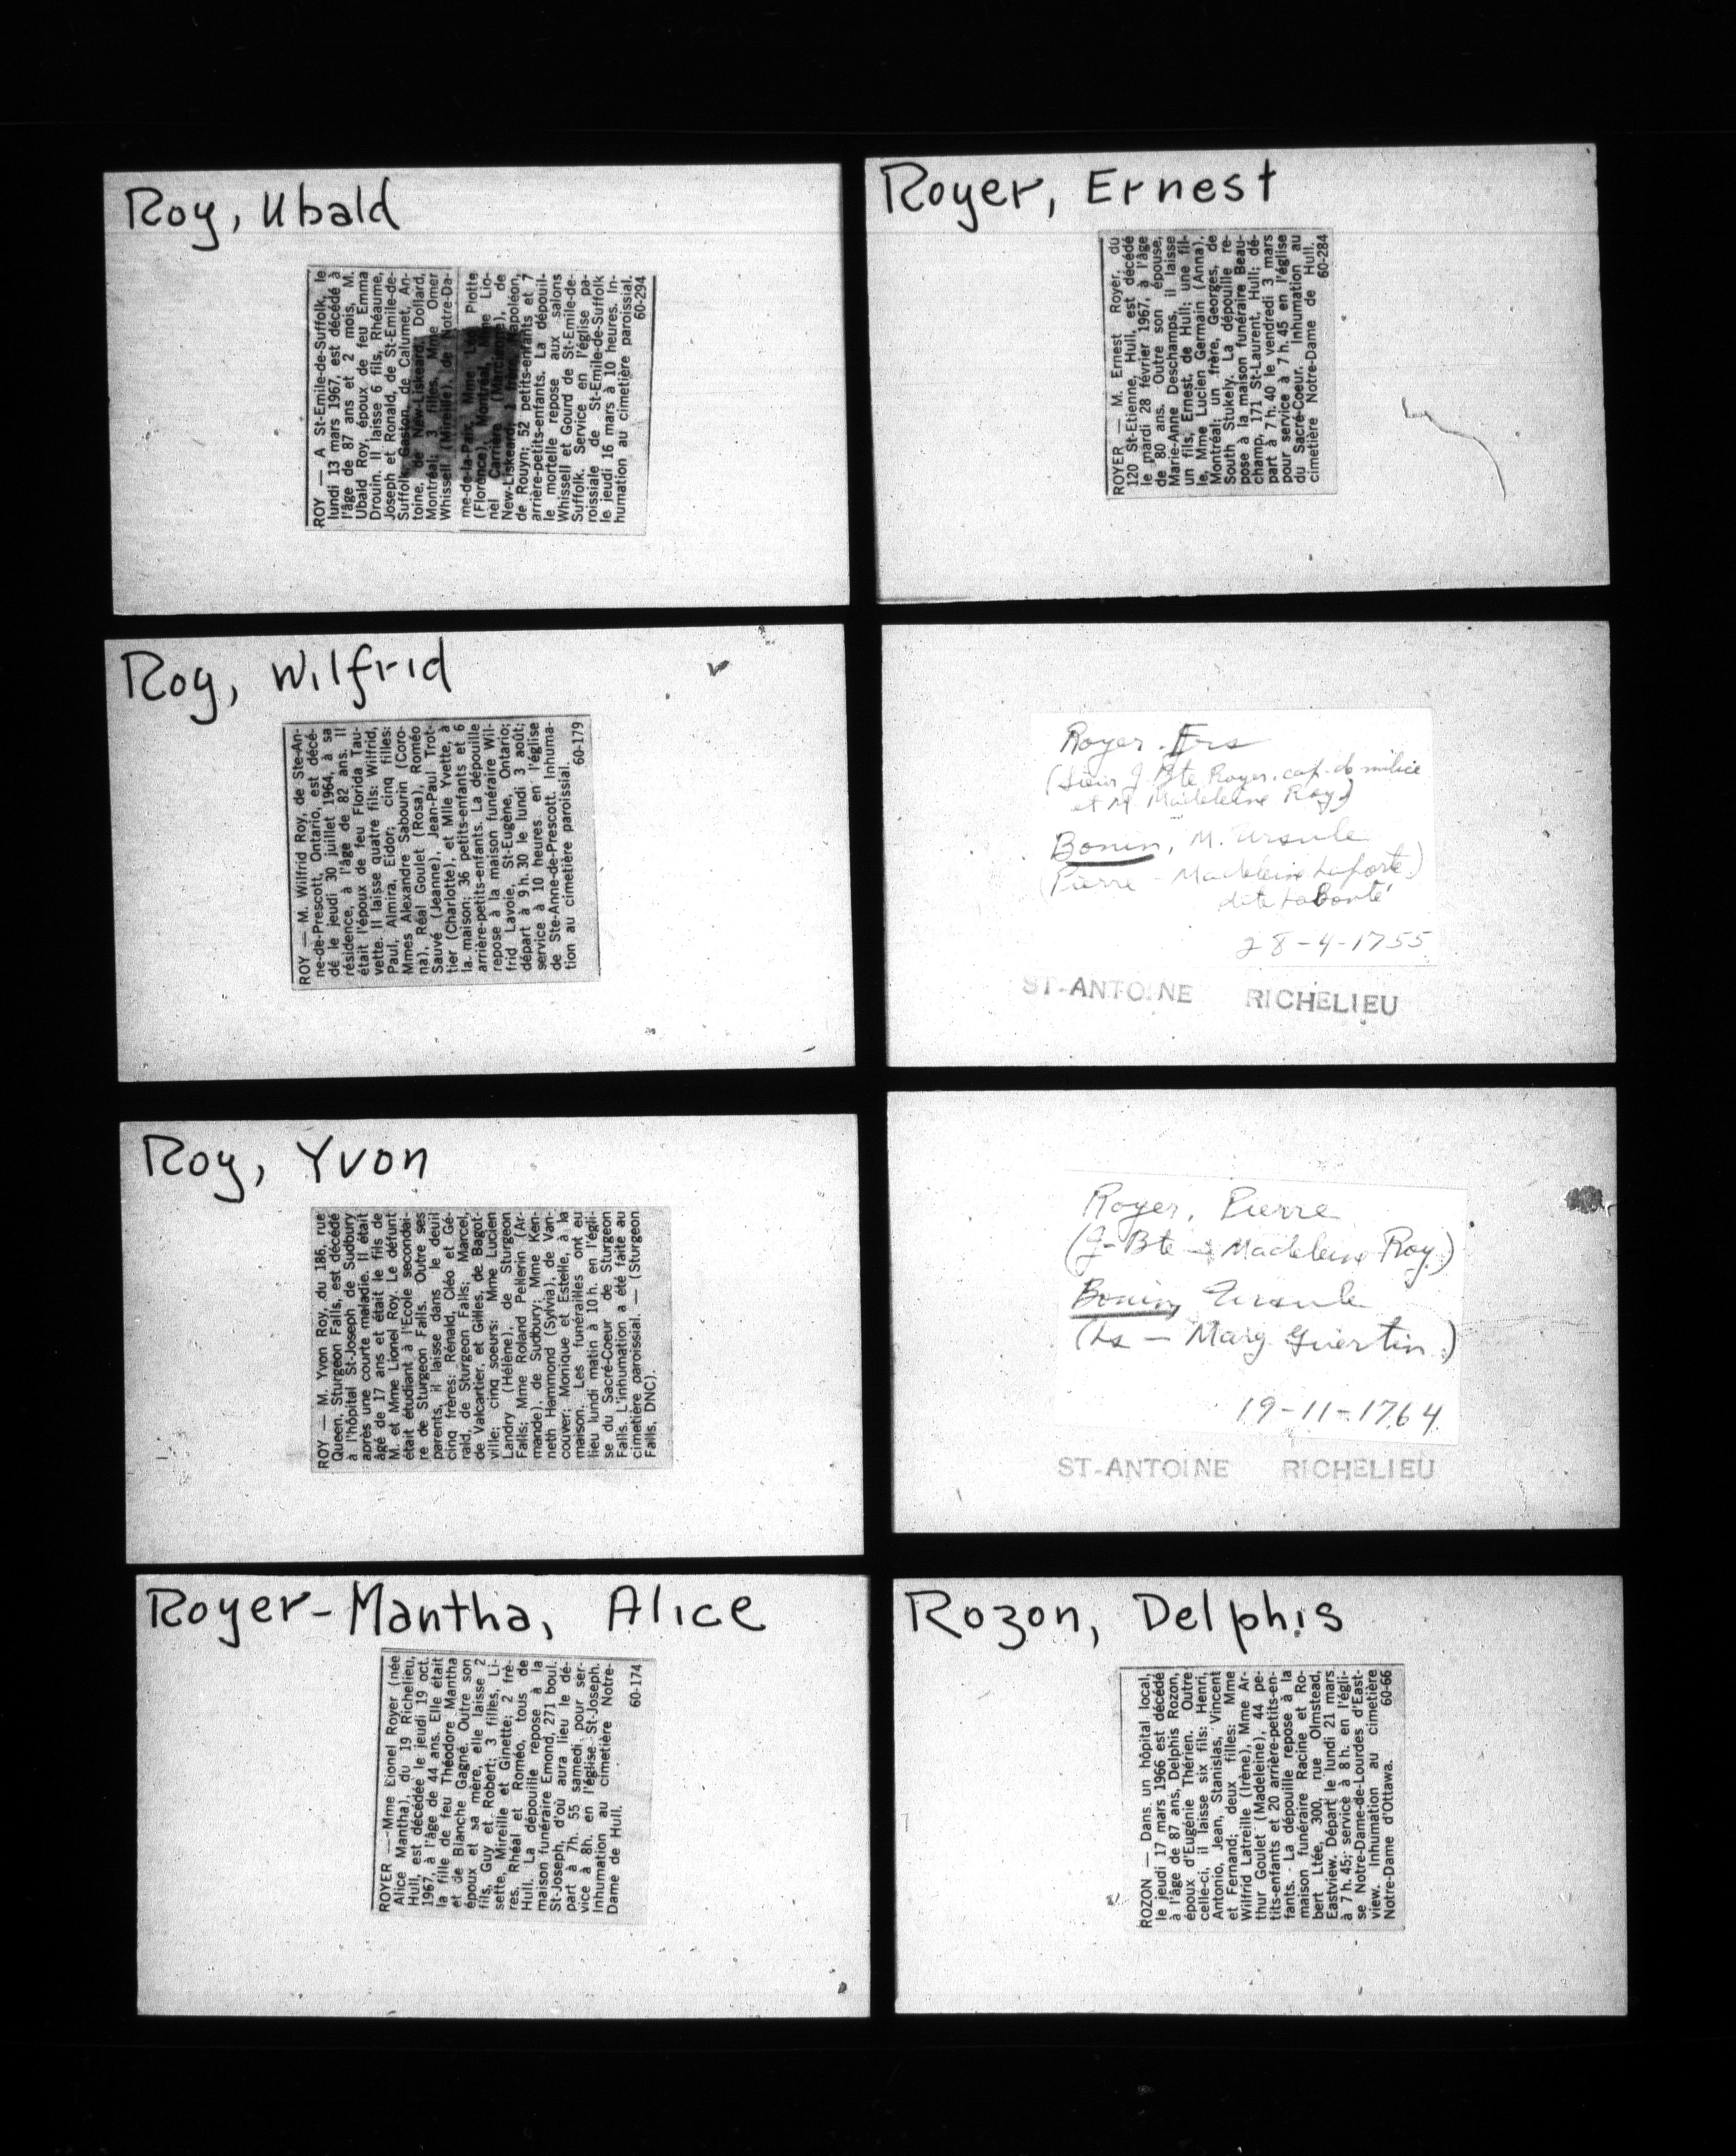 Roy, Ubald
ROY — A St-Emile-de-Suffolk, le
lundi 13 mars 1967, est décédé à
l'âge de 87 ans et 2 mois, M.
Ubald Roy, époux de feu Emma
Drouin. Il laisse 6 fils, Rhéaume,
Joseph et Ronald, de St-Emile-de-
Suffolk, Gaston, de Calumet, An-
toine, de New-Liskeard, Dollard,
Montréal; 3 filles, Mme Omer
Whissell (Mireille), de Notre-Da-
me-de-la-Paix, Mme Léo Piotte
(Florence), Montréal, Mme Lio-
nel Carrière (Marcienne), de
New-Liskeard; 1 frère, Napoléon,
de Rouyn; 52 petits-enfants et 7
arrière-petits-enfants. La dépouil-
le mortelle repose aux salons
Whissell et Gourd de St-Emile-de-
Suffolk. Service en l'église pa-
roissiale de St-Emile-de-Suffolk
le jeudi 16 mars à 10 heures. In-
humation au cimetière paroissial.
60-294
Roy, Wilfrid
ROY — M. Wilfrid Roy, de Ste-An-
ne-de-Prescott, Ontario, est décé-
dé le jeudi 30 juillet 1964, à sa
résidence, à l'âge de 82 ans. Il
était l'époux de feu Florida Tau-
vette. Il laisse quatre fils: Wilfrid,
Paul, Almira, Eldor; cinq filles:
Mmes Alexandre Sabourin (Coro-
na), Réal Goulet (Rosa), Roméo
Sauvé (Jeanne), Jean-Paul Trot-
tier (Charlotte), et Mlle Yvette, à
la maison; 36 petits-enfants et 6
arrière-petits-enfants. La dépouille
repose à la maison funéraire Wil-
frid Lavoie, St-Eugène, Ontario;
départ à 9 h. 30 le lundi 3 août;
service à 10 heures en l'église
de Ste-Anne-de-Prescott. Inhuma-
tion au cimetière paroissial.
60-179
Roy, Yvon
ROY — M. Yvon Roy, du 186, rue
Queen, Sturgeon Falls, est décédé
à l'hôpital St-Joseph de Sudbury
après une courte maladie. Il était
âgé de 17 ans et était le fils de
M. et Mme Lionel Roy. Le défunt
était étudiant à l'Ecole secondai-
re de Sturgeon Falls. Outre ses
parents, il laisse dans le deuil
cinq frères: Rénald, Cléo et Gé-
rald, de Sturgeon Falls; Marcel,
de Valcartier, et Gilles, de Bagot-
ville; cinq soeurs: Mme Lucien
Landry (Hélène), de Sturgeon
Falls; Mme Roland Pellerin (Ar-
mande), de Sudbury; Mme Ken-
neth Hammond (Sylvia), de Van-
couver; Monique et Estelle, à la
maison. Les funérailles ont eu
lieu lundi matin à 10 h. en l'égli-
se du Sacré-Coeur de Sturgeon
Falls. L'inhumation a été faite au
cimetière paroissial. — (Sturgeon
Falls, DNC).
Royer-Mantha, Alice
ROYER — Mme Lionel Royer (née
Alice Mantha), du 19 Richelieu,
Hull, est décédée le jeudi 19 oct.
1967, à l'âge de 44 ans. Elle était
la fille de feu Théodore Mantha
et de Blanche Gagné. Outre son
époux et sa mère, elle laisse 2
fils, Guy et Robert; 3 filles, Li-
sette, Mireille et Ginette; 2 frè-
res, Rhéal et Roméo, tous de
Hull. La dépouille repose à la
maison funéraire Emond, 271 boul.
St-Joseph, d'où aura lieu le dé-
part à 7h. 55 samedi pour ser-
vice à 8h. en l'église St-Joseph.
Inhumation au cimetière Notre-
Dame de Hull.
60-174
Royer, Ernest
ROYER — M. Ernest Royer, du
120 St-Etienne, Hull, est décédé
le mardi 28 février 1967, à l'âge
de 80 ans. Outre son épouse,
Marie-Anne Deschamps, il laisse
un fils, Ernest, de Hull; une fil-
le, Mme Lucien Germain (Anna),
Montréal; un frère, Georges, de
South Stukely. La dépouille re-
pose à la maison funéraire Beau-
champ, 171 St-Laurent, Hull; dé-
part à 7 h. 40 le vendredi 3 mars
pour service à 7 h. 45 en l'église
du Sacré-Coeur. Inhumation au
cimetière Notre-Dame de Hull.
60-284
Royer. Frs
(Sieur J. Bte Royer. cap. de milice
et M Madeleine Roy)
Bonin, M. Ursule
(Pierre - Madeleine Laporte)
dite Labonté
28-4-1755
ST-ANTOINE RICHELIEU
Royer, Pierre
(J-Bte - Madeleine Roy.)
Bonin, Ursule
(Ls - Marg. Guertin.)
19-11-1764
ST-ANTOINE RICHELIEU
Rozon, Delphis
ROZON — Dans un hôpital local,
le jeudi 17 mars 1966 est décédé
à l'âge de 87 ans, Delphis Rozon,
époux d'Eugénie Thérien. Outre
celle-ci, il laisse six fils: Henri,
Antonio, Jean, Stanislas, Vincent
et Fernand; deux filles: Mme
Wilfrid Latreille (Irène), Mme Ar-
thur Goulet (Madeleine), 44 pe-
tits-enfants et 20 arrière-petits-en-
fants. La dépouille repose à la
maison funéraire Racine et Ro-
bert Ltée, 300, rue Olmstead,
Eastview. Départ le lundi 21 mars
à 7 h. 45; service à 8 h. en l'égli-
se Notre-Dame-de-Lourdes d'East-
view. Inhumation au cimetière
Notre-Dame d'Ottawa. 60-66